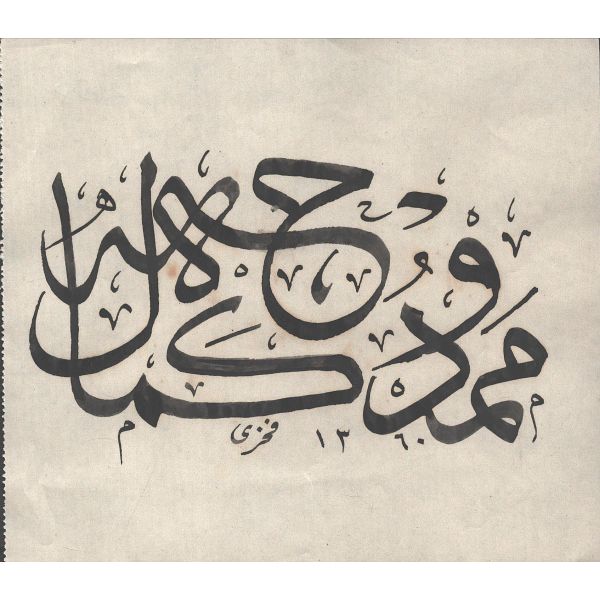 ممدوح كمال
فخری ١٣٦٠